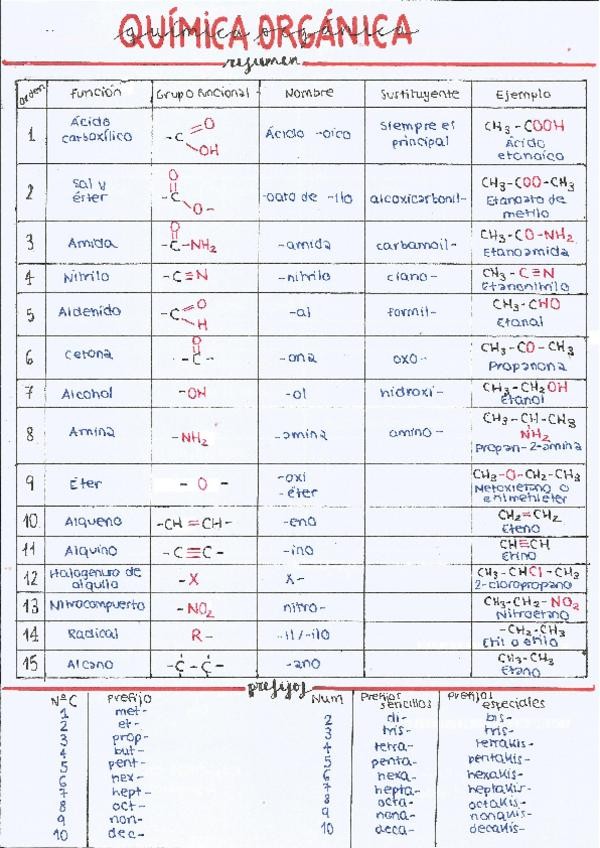 QUÍMICA ORGÁNICA
química orgánica
resumen
orden Función Grupo funcional Nombre Sustituyente Ejemplo
1 Ácido carboxílico -C=O OH Ácido -oico Siempre es principal CH3-COOH Ácido etanoico
2 Sal y éster O -C O- -oato de -ilo alcoxicarbonil- CH3-COO-CH3 Etanoato de metilo
3 Amida O -C-NH2 -amida carbamoil- CH3-CO-NH2 Etanoamida
4 Nitrilo -C≡N -nitrilo ciano- CH3-C≡N Etanonitrilo
5 Aldehído -C=O H -al formil- CH3-CHO Etanal
6 Cetona O -C- -ona oxo- CH3-CO-CH3 Propanona
7 Alcohol -OH -ol hidroxi- CH3-CH2OH Etanol
8 Amina -NH2 -amina amino- CH3-CH-CH3 NH2 Propan-2-amina
9 Éter -O- -oxi -éter CH3-O-CH2-CH3 Metoxietano o
10 Alqueno -CH=CH- -eno CH2=CH2 Eteno
11 Alquino -C≡C- -ino CH≡CH Etino
12 Halogenuro de alquilo -X X- CH3-CHCl-CH3 2-cloropropano
13 Nitrocompuesto -NO2 nitro- CH3-CH2-NO2 Nitroetano
14 Radical R- -il/-ilo -CH2-CH3 Etil o etilo
15 Alcano -C-C- -ano CH3-CH3 Etano
prefijos
NºC Prefijo Num Prefijos sencillos Prefijos especiales
1 met-
2 et- 2 di- bis-
3 prop- 3 tris- tris-
4 but- 4 tetra- tetrakis-
5 pent- 5 penta- pentakis-
6 hex- 6 hexa- hexakis-
7 hept- 7 hepta- heptakis-
8 oct- 8 octa- octakis-
9 non- 9 nona- nonakis-
10 dec- 10 deca- decakis-